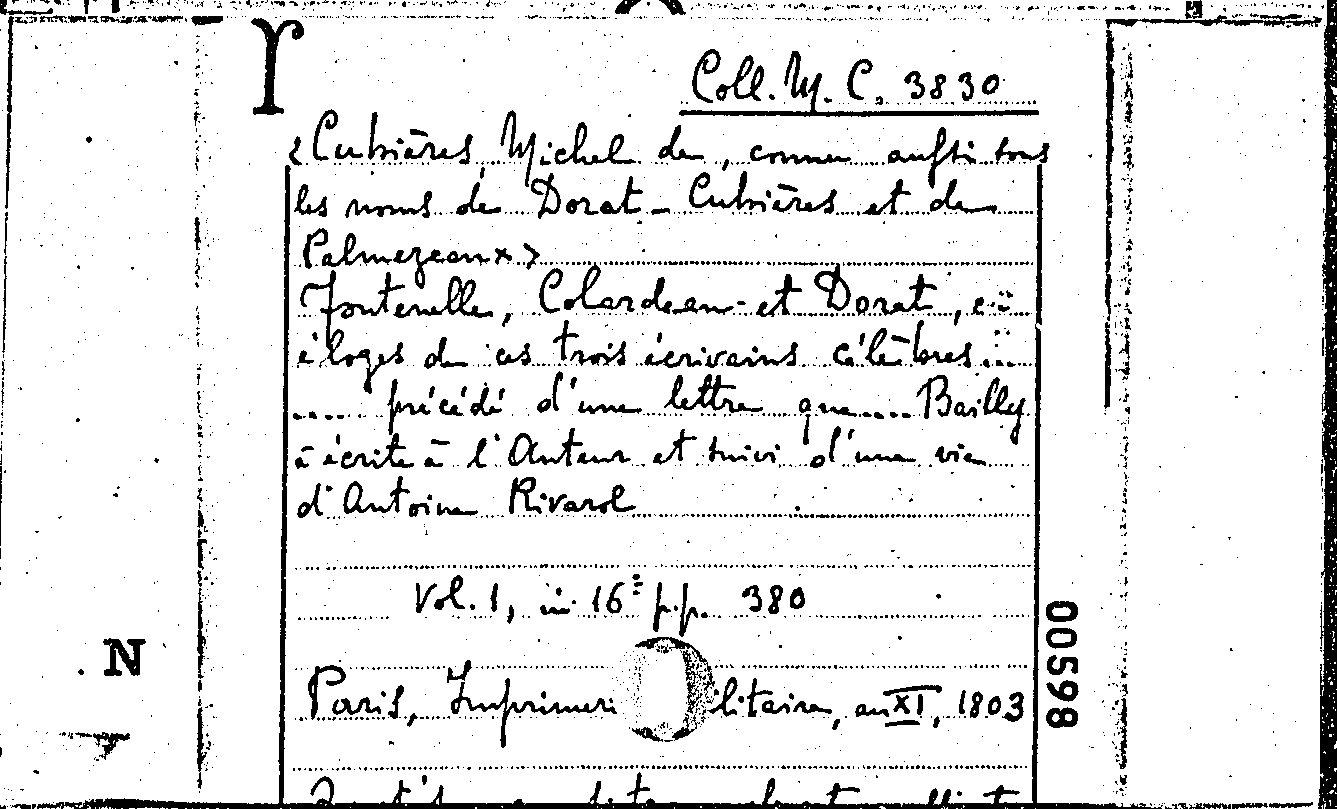 Coll. M. C. 3830
<Cubières Michel de, connu aussi sous
les noms de Dorat-Cubières et de
Palmezeaux>
Fontenelle, Colardeau et Dorat, o..
éloges de ces trois écrivains célèbres....
.... précédé d'une lettre que.... Bailly
à écrite à l'Auteur et suivi d'une vie
d'Antoine Rivarol
Vol. 1, in 16º p.p. 380
Paris, Imprimeri litaire, an XI, 1803
N
00598